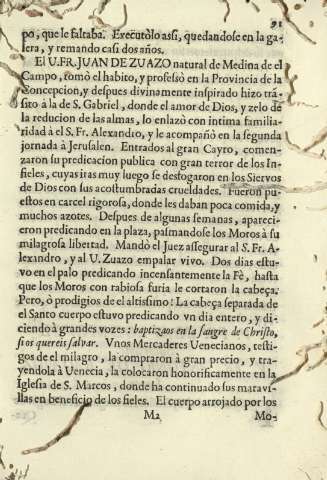 91
po, que le faltaba. Executòlo assi, quedandose en la ga-
lera, y remando casi dos años.
El U.FR. JUAN DE ZUAZO natural de Medina de el
Campo, tomò el habito, y professò en la Provincia de la
Concepcion, y despues divinamente inspirado hizo trá-
sito à la de S. Gabriel, donde el amor de Dios, y zelo de
la reducion de las almas, lo enlazò con intima familia-
ridad à el S. Fr. Alexandro, y le acompañò en la segunda
jornada à Jerusalen. Entrados al gran Cayro, comen-
zaron su predicacion publica con gran terror de los In-
fieles, cuyas iras muy luego se desfogaron en los Siervos
de Dios con sus acostumbradas crueldades. Fueron pu-
estos en carcel rigorosa, donde les daban poca comida, y
muchos azotes. Despues de algunas semanas, apareci-
eron predicando en la plaza, pasmandose los Moros à su
milagrosa libertad. Mandò el Juez assegurar al S. Fr. A-
lexandro, y al U. Zuazo empalar vivo. Dos dias estu-
vo en el palo predicando incensantemente la Fè, hasta
que los Moros con rabiosa furia le cortaron la cabeça.
Pero, ò prodigios de el altissimo! La cabeça separada de
el Santo cuerpo estuvo predicando vn dia entero, y di-
ciendo à grandes vozes: baptizaos en la sangre de Christo,
si os quereis salvar. Vnos Mercaderes Uenecianos, testi-
gos de el milagro, la compraron à gran precio, y tra-
yendola à Uenecia, la colocaron honorificamente en la
Iglesia de S. Marcos, donde ha continuado sus maravi-
llas en beneficio de los fieles. El cuerpo arrojado por los
M2 Mo-